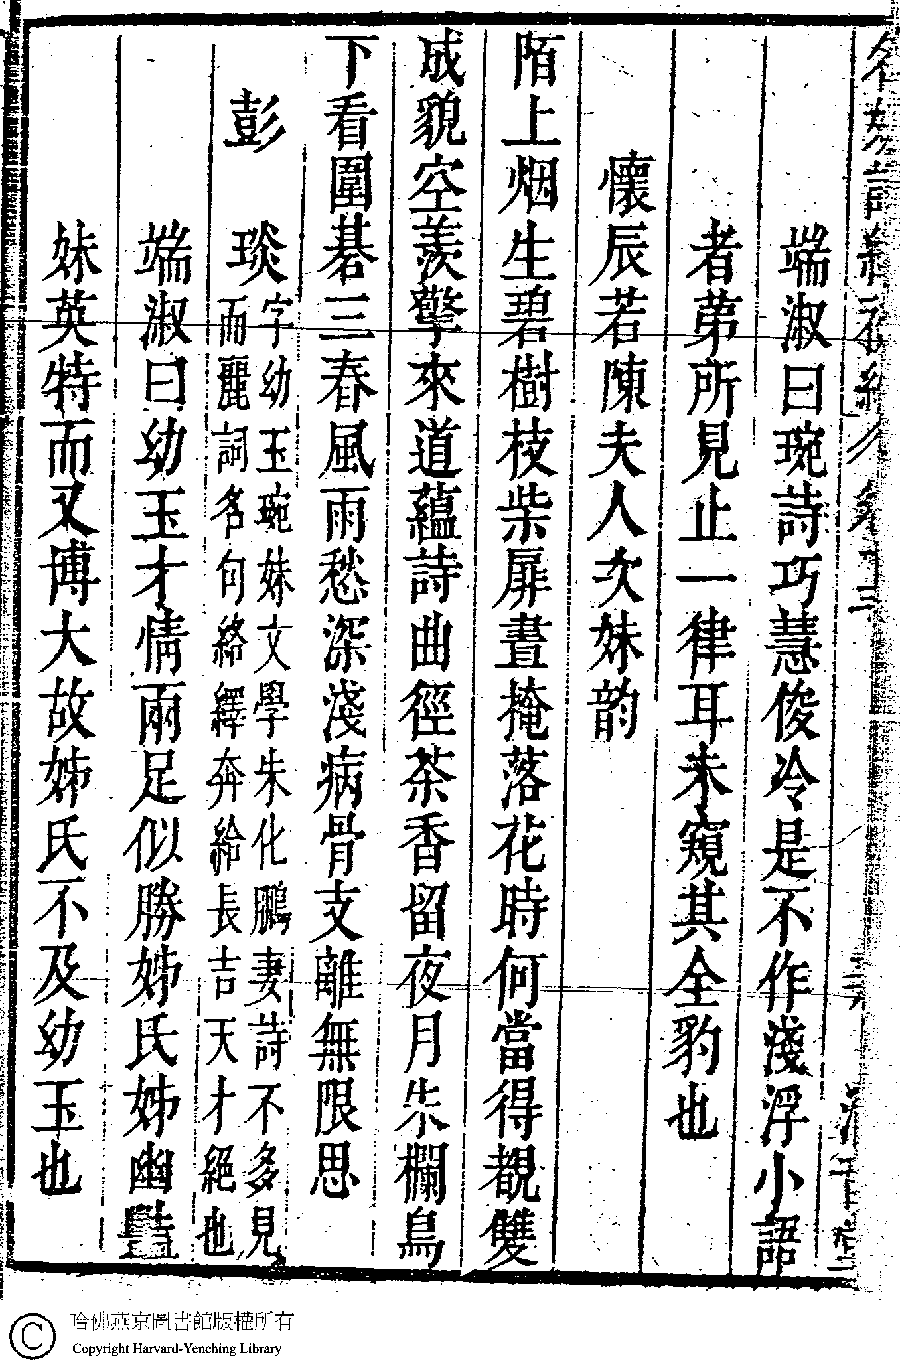 名媛詩緯初編
端淑曰琬詩巧慧俊冷是不作淺浮小語
者苐所見止一律耳未窺其全豹也
懷辰若陳夫人次妹韵
陌上烟生碧樹枝柴扉晝掩落花時何當得覩雙
成貌空羨擎來道蘊詩曲徑茶香留夜月朱欄鳥
下看圍棊三春風雨愁深淺病骨支離無限思
彭琰
字幼玉琬妹文學朱化鵬妻詩不多見
而麗詞名句絡繹奔給長吉天才絕也
端淑曰幼玉才情兩足似勝姊氏姊幽豔
妹英特而又博大故姊氏不及幼玉也
哈佛燕京圖書館版權所有
Copyright Harvard-Yenching Library